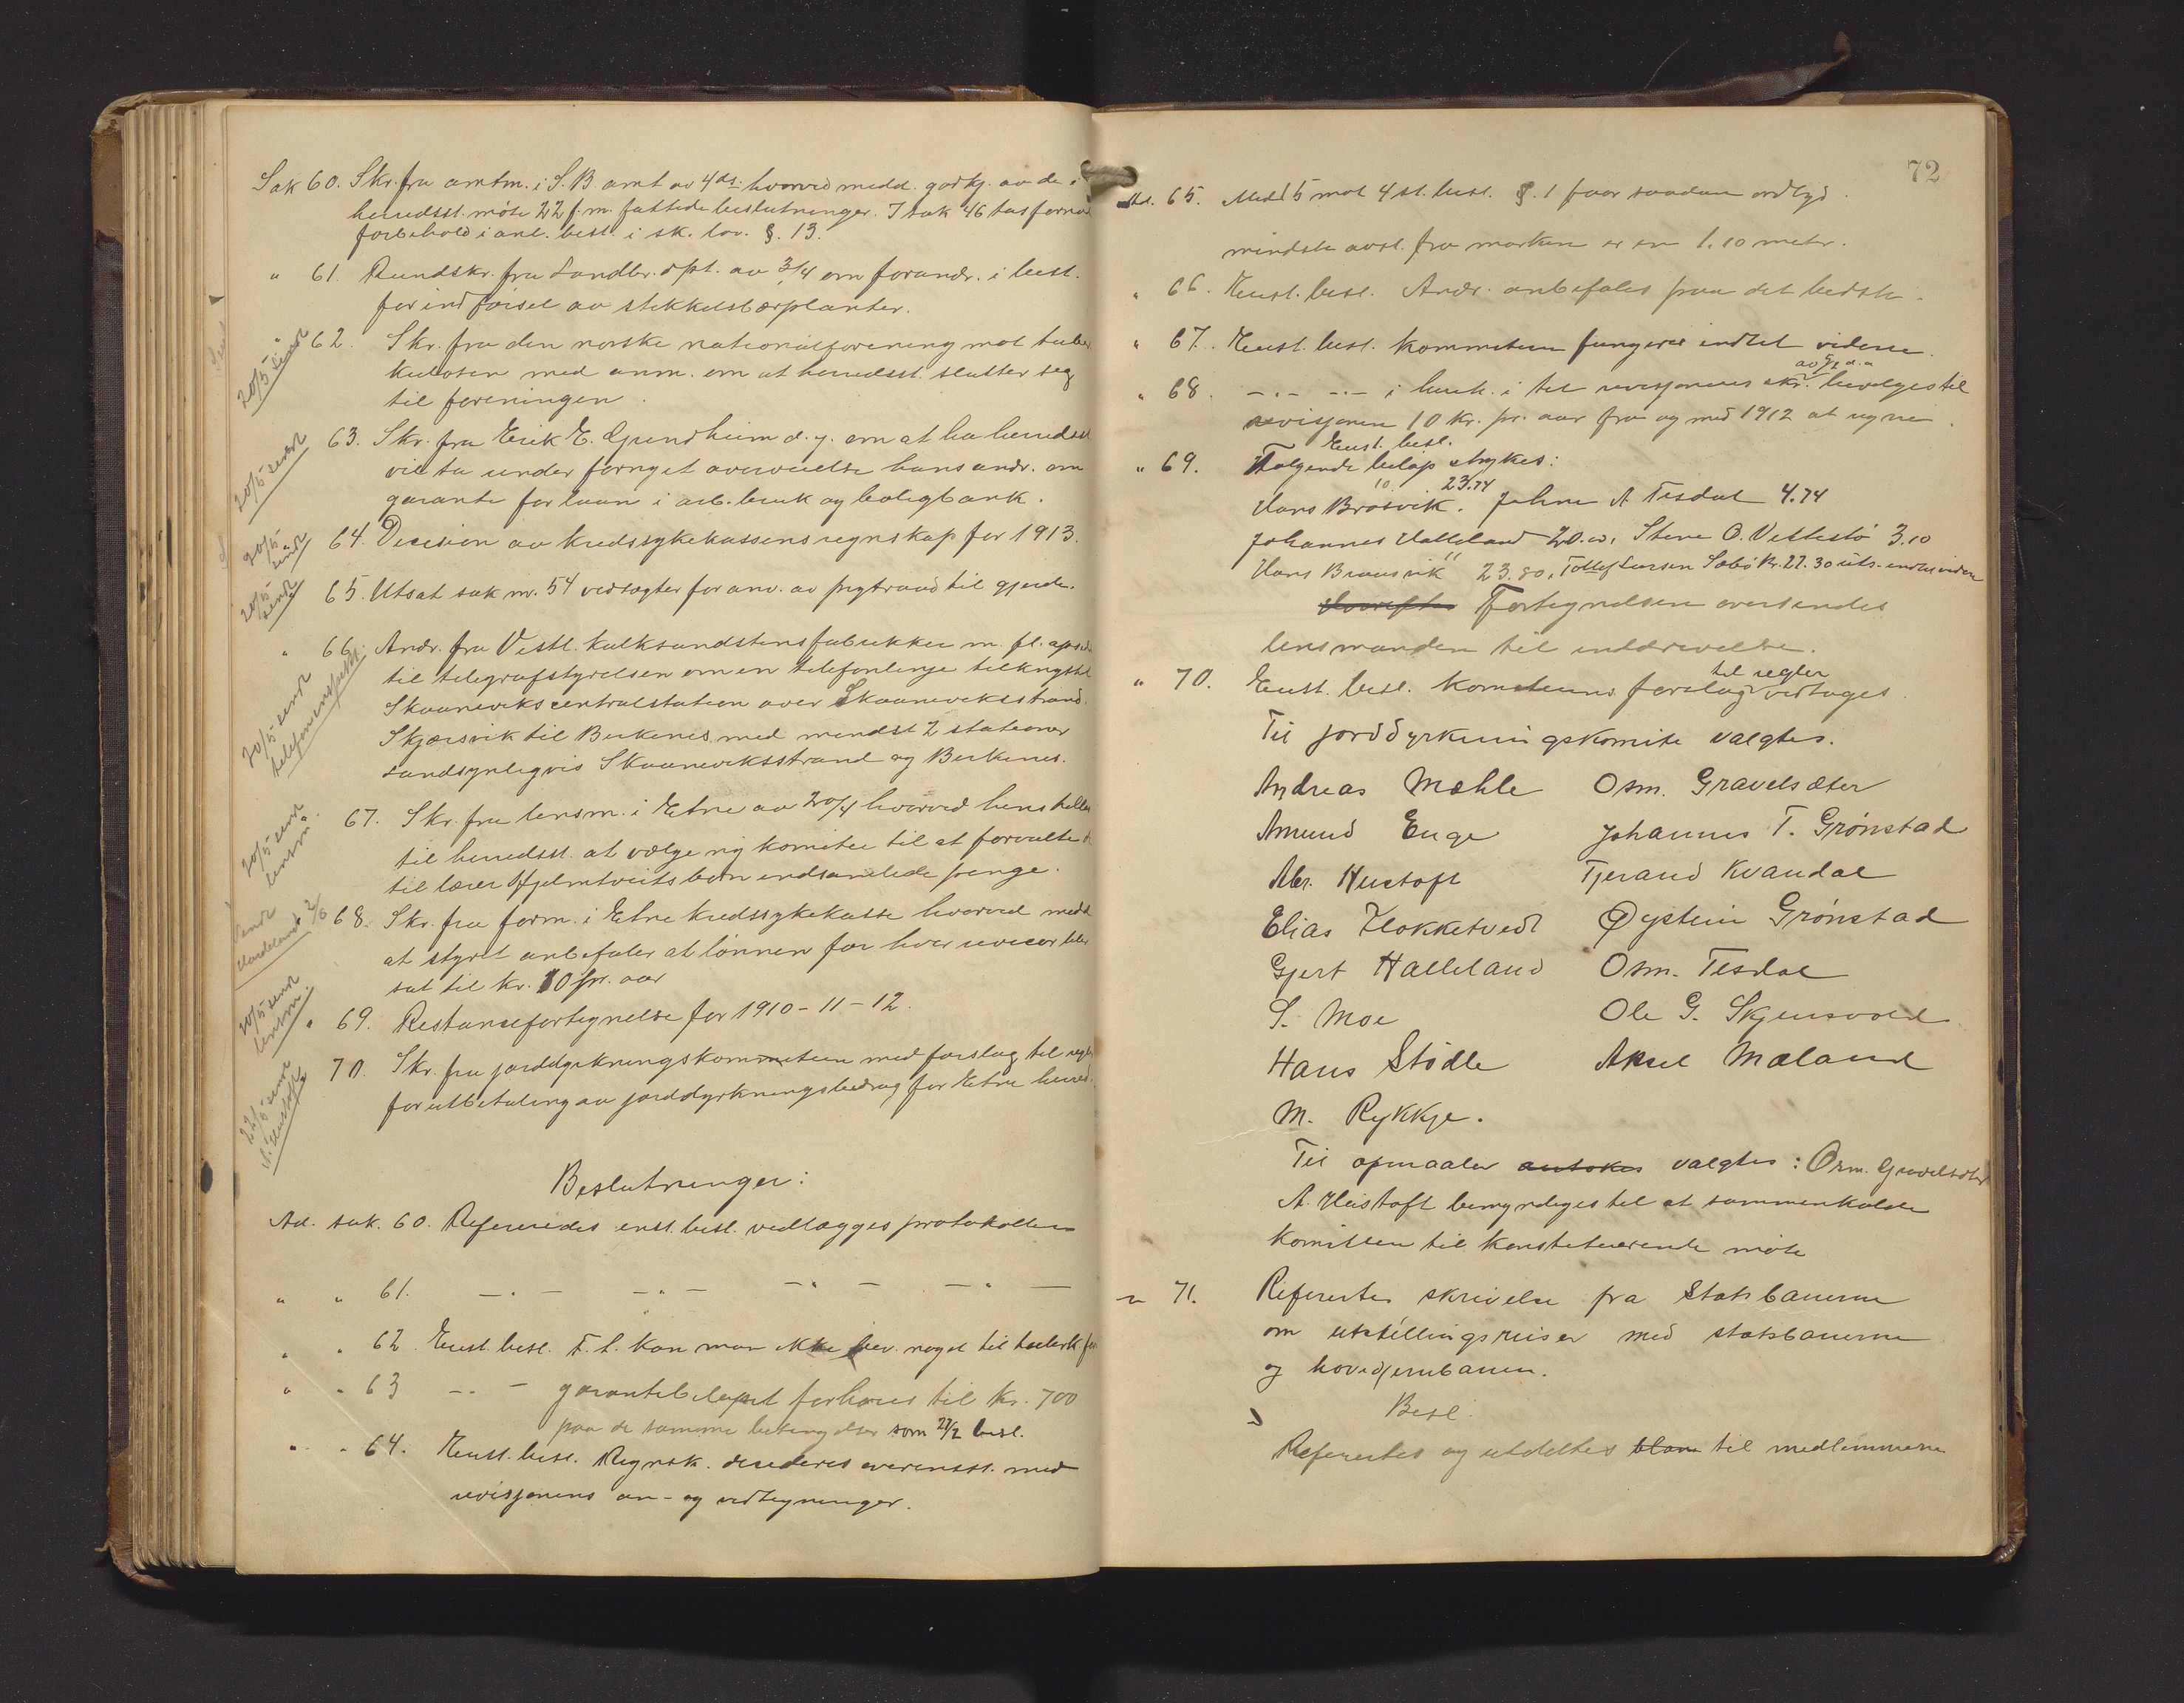 Sak 60. Skr. fra amtm. i S. B. amt av 4 ds. hvorved medd. godkj. av de i
herredsst. møte 22 f. m. fattede beslutninger. I sak 46 tas fornød
forbehold i anl. best. i sk. lov. §. 13.
" 61. Rundskr. fra Landbr. dpt. av 3/4 om forandr. i best.
for indførsel av stikkelsbærplanter.
20/5 sendt
" 62. Skr. fra den norske nationalforening mot tuber
kulosen med anm. om at herredsst. slutter seg
til foreningen.
20/5 sendt
63. Skr. fra Erik E. Grindheim d. y. om at ha herredsst
vil ta under fornyet overveielse hans andr. om
garanti for laan i arb. bruk og boligbank.
20/5 sendt
64. Decision av kredssykekassens regnskap for 1913.
20/5 sendt
65. Utsat sak nr. 54 vedtægter for anv. av pigtraad til gjerde.
20/5 sendt telefoninspekt.
" 66. Andr. fra Vestl. kalksandstensfabrikker m. fl.
til telegrafstyrelsen om en telefonlinje tilknyttet
Skaaneviks centralstation over Skaaneviksstrand.
Skjærsvik til Birkenes med mindst 2 stationer
sandsynligvis Skaaneviksstrand og Birkenes.
20/5 sendt lensm.
67. Skr. fra lensm. i Etne av 20/4 hvorved henstilles
til herredsst. at vælge ny komitee til at forvalte de
til lærer Hjelmtveits barn indsamlede penge.
Sendt Vardeland 2/6
68. Skr. fra form. i Etne kredssykekasse hvorved medd
at styret anbefaler at lønnen for hver revisor blir
sat til kr. 10 pr. aar
20/5 sendt lensm.
" 69. Restancefortegnelse for 1910-11-12.
22/5 sendt A. Hustoft
70. Skr. fra jorddyrkningskomiteen med forslag til regler
for utbetaling av jorddyrkningsbidrag for Etne herred.
Beslutninger:
Ad. sak. 60. Refereredes enst. besl. vedlægges protokollen
" " 61. -"- -"- -"- -"-
" " 62. Enst. besl. F. t. kan man ikke bev. noget til tuberk. for
" " 63 -"- garantibeløpet forhøies til kr. 700
paa de samme betingelser som 27/2 besl.
" " 64. Enst. besl. Regnsk. decideres overensst. med
revisjonens an- og vedtegninger.
72
Ad. 65. Med 5 mot 4 st. besl. §. 1 faar saadan ordlyd.
mindste avst. fra marken er en 1.10 meter.
" 66. Enst. besl. Andr. anbefales paa det bedste.
" 67. Enst. besl. Kommiteen fungerer indtil videre.
" 68. -"- -"- i henh. i til revisjonens skr. av 5/2 d.a. bevilges til
revisjonen 10 kr. pr. aar fra og med 1912 at regne.
Enst. besl.
" 69. Følgende beløp strykes:
10. 23.74
Hans Brosvik. Johan A Tesdal 4.74
Johannes Halleland 20.00, Steve O. Vettestø 3.10
Hans Brausvik 23.80, Tollef Larsen Sæbø kr. 27.30 uts. indtil videre
Hvorefter Fortegnelsen oversendes
lensmanden til inddrivelse.
" 70. Enst. besl. komiteens forslag til regler vedtages.
Til jorddyrkningskomite valgtes.
Andreas Mæhle Osm. Gravelsæter
Amund Enge Johannes T. Grønstad
Abr. Hustoft Tjerand Kvandal
Elias Flokketvedt Øystein Grønstad
Gjert Halleland Osm. Tesdal
S. Moe Ole G. Skjensvold
Hans Stødle Aksel Mæland
M. Rykkje.
Til opmaaler antokes valgtes: Osm. Gravelsæter
A. Hustoft bemyndiges til at sammenkalde
komiteen til konstituerende møte
" 71. Refertes skrivelse fra Statsbanerne
om utstillingsreiser med statsbanerne
og hovedjernbanen.
Besl.
Refertes og utdeltes blane til medlemmerne